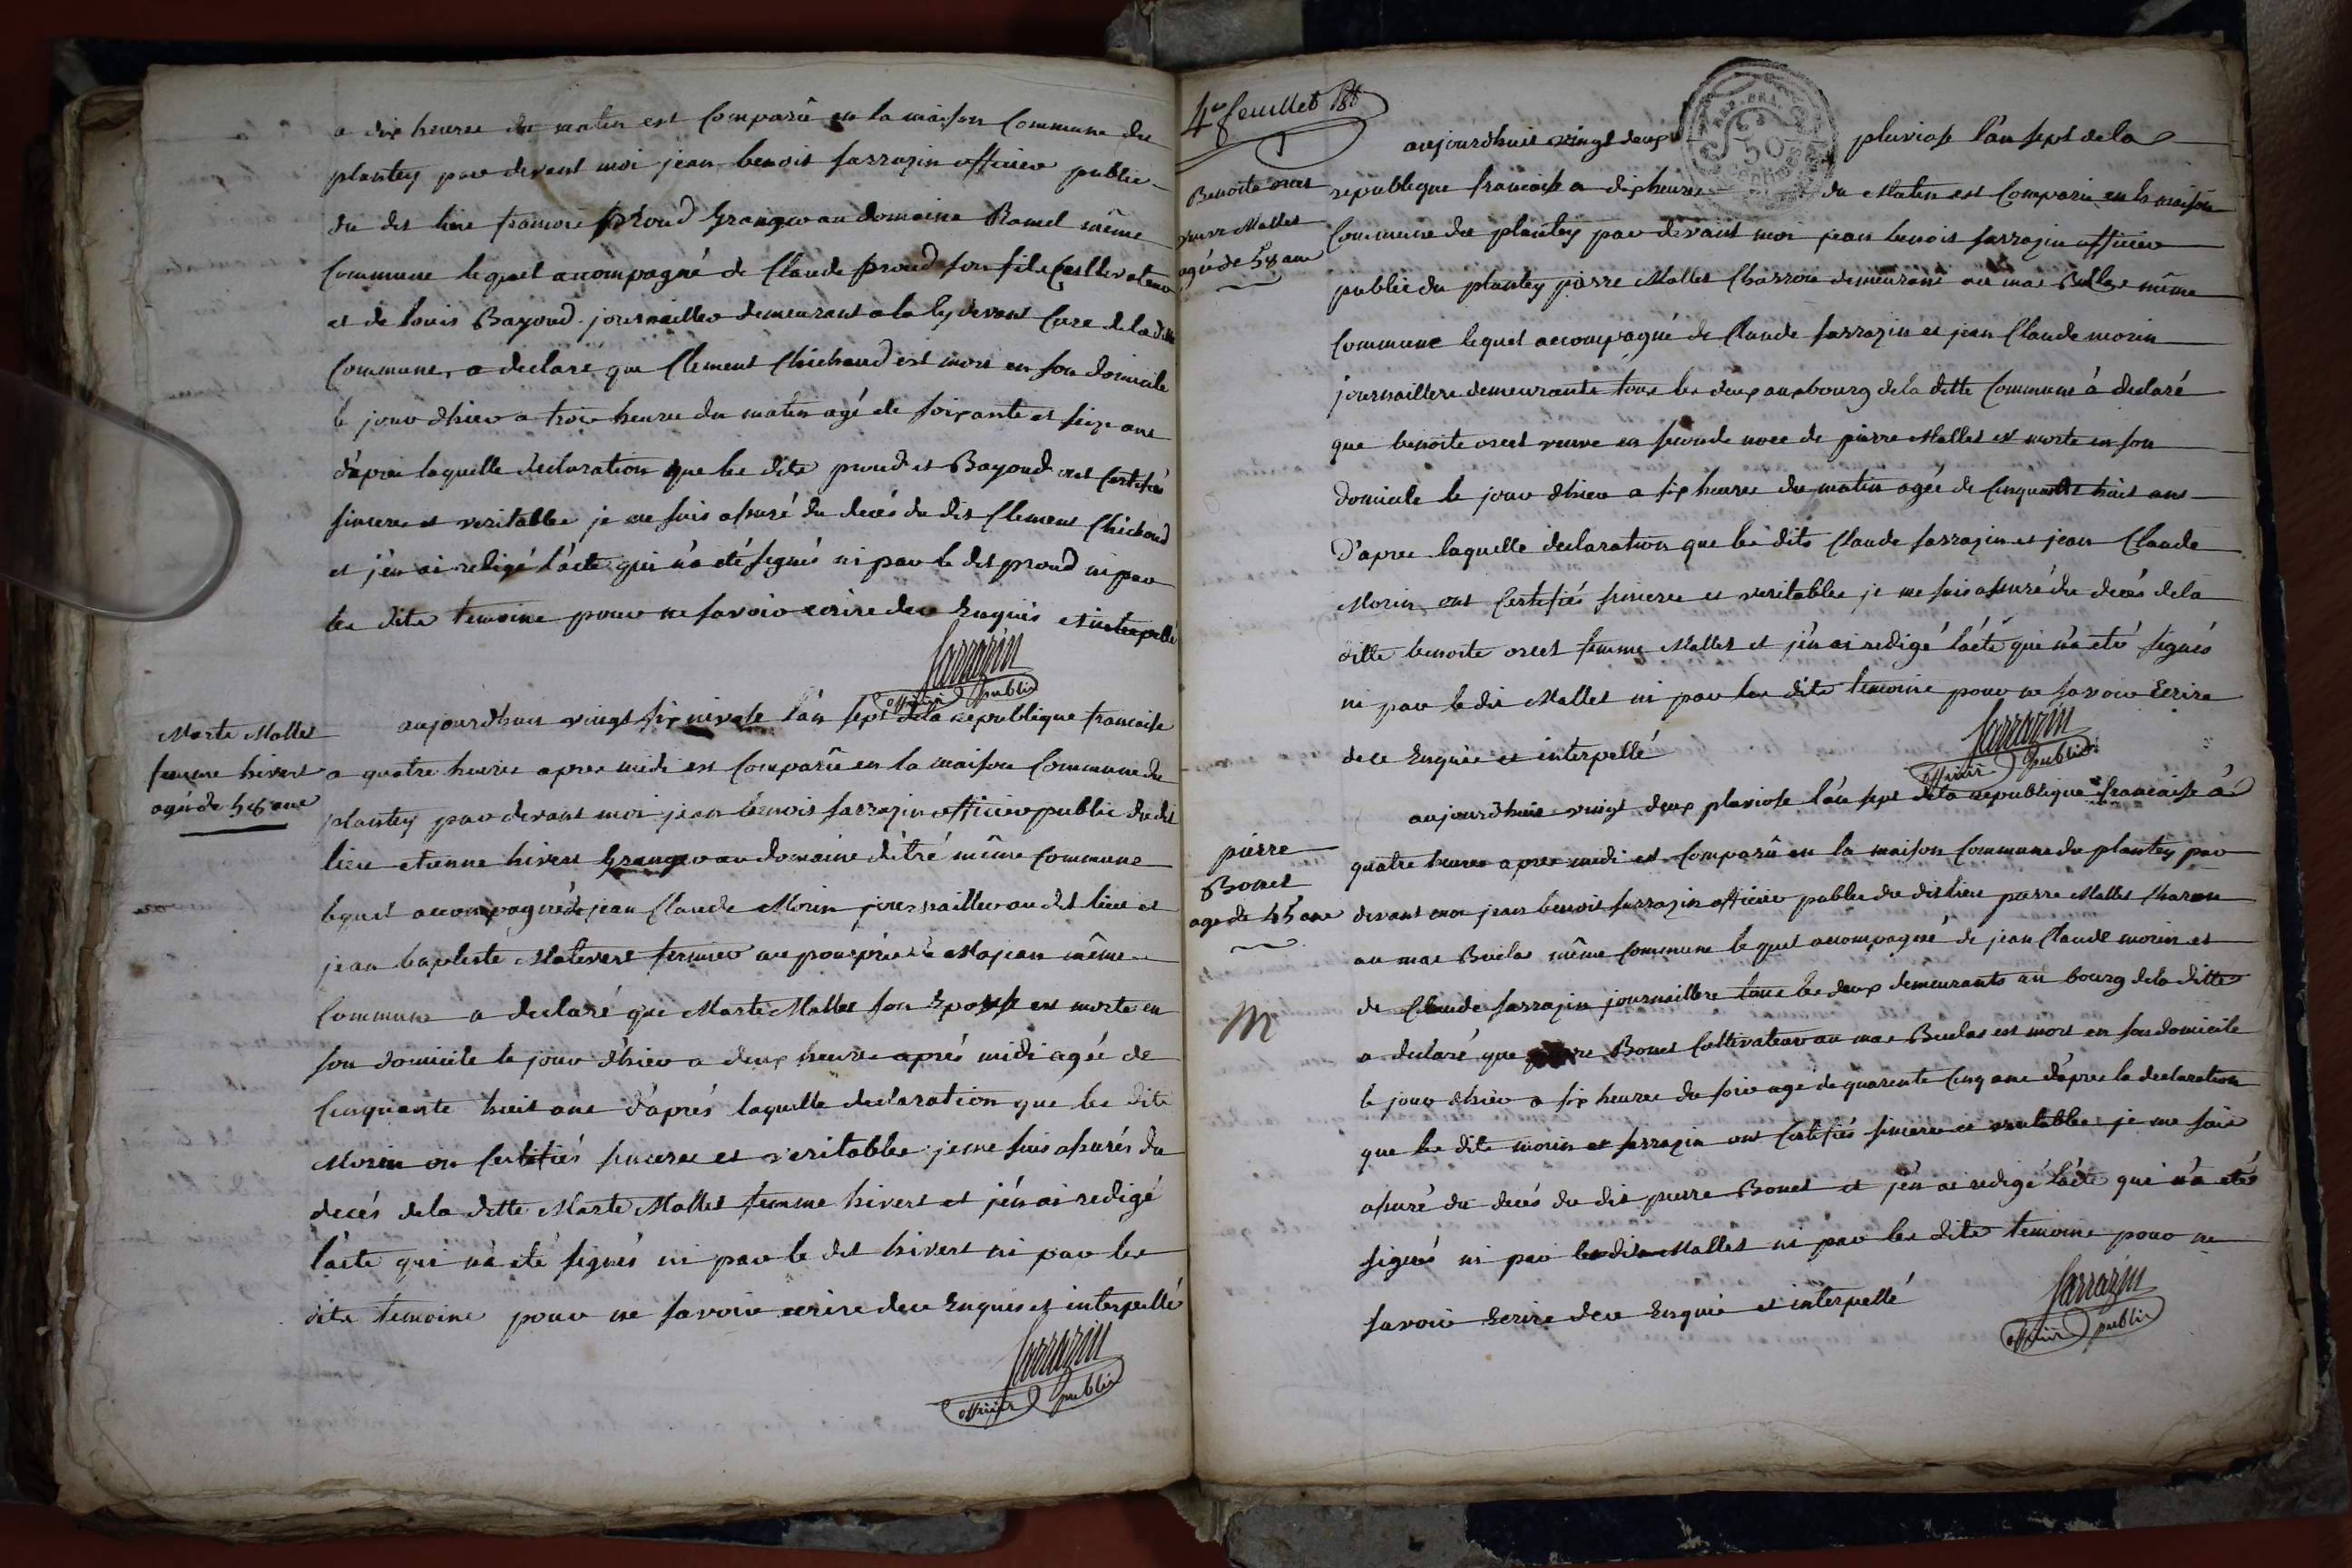 a dix heures du matin est Comparû en la maison Commune du
plantey par devant moi jean benoit sarrazin officier public
du dit lieu francois proud Granger au domaine Ramel même
Commune lequel accompagné de Claude proud son fils Cultivateur
et de louis Bayoud journaillier demeurant a la devant Cure de la ditte
Commune, a declaré que Clement Chichoud est mort en son domicile
le jour dhier a trois heures du matin agé de soixante et seize ans
d'aprés laquelle declaration que les dits proud et Bayoud ont Certifiés
sinceres et veritables je me suis assuré du decés du dit Clement Chichoud
et j'en ai redigé l'acte qui n'a eté signés ni par le dit proud ni par
les dits temoins pour ne savoir ecrire de ce Enquis et interpellé
Sarrazin
officier public
Marte Mallet
femme hivert
agée de 58 ans
aujourdhuis vingt six nivose l'an sept dela republique francaise
a quatre heures apres midi est Comparû en la maison Commune du
plantey par devant moi jean benoit sarrazin officier public du dit
lieu etienne hivert Granger au domaine d'être même Commune
lequel accompagné de jean Claude Morin journaillier au dit lieu et
jean baptiste fermier au même
Commune a declaré que Marte Mallet son Epouse est morte en
son domicile le jour d'hier a deux heures aprés midi agée de
Cinquante huit ans d'aprés laquelle declaration que les dits
Morin on Certifiés sinceres et veritables je me suis assurés du
decés dela ditte Marte Mallet femme hivert et j'en ai redigé
l'acte qui n'a eté signés ni par le dit hivert ni par les
dits temoins pour ne savoir ecrire de ce Enquis et interpellé
Sarrazin
officier public
4e feuillet
REP. FRA.
50
CENTIMES
Benoite
veuve Mallet
agée de 58 ans
aujourdhuis vingt deux pluviose l'an sept de la
republique francaise a dix heures du Matin est Comparu en la maison
Commune du plantey par devant moi jean benoit sarrazin officier
public du plantey pierre Mallet Charron demeurant au mas Bullas même
Commune lequel accompagné de Claude sarrazin et jean Claude morin
journailliers demeurants tous les deux au bourg dela ditte Commune à declaré
que benoite veuve en seconde noce de pierre Mallet est morte en son
domicile le jour dhier a six heures du matin agée de Cinquante huit ans
D'apres laquelle declaration que les dits Claude sarrazin et jean Claude
Morin ont Certifiés sinceres et veritables je me suis assuré du decés dela
ditte benoite femme Mallet et j'en ai redigé l'acte qui n'a eté signés
ni par le dit Mallet ni par les dits temoins pour ne savoir Ecrire
de ce Enquis et interpellé
Sarrazin
officier public
pierre
Bonet
agé de 45 ans
M
aujourdhuis vingt deux pluviose l'an sept dela republique francaise à
quatre heures apres midi est Comparû en la maison Commune du plantey par
devant moi jean benoit sarrazin officier public du dit lieu pierre Mallet Charon
au mas Bullas même Commune lequel accompagné de jean Claude morin et
de Claude sarrazin journailliers tous les deux demeurants au bourg dela ditte
a declaré que pierre Bonet Cultivateur au mas Bullas est mort en son domicile
le jour dhier a six heures du soir agé de quarente Cinq ans d'apres la declaration
que les dits morin et sarrazin ont Certifiés sinceres et veritables je me suis
assuré du decés du dit pierre Bonet et j'en ai redigé l'acte qui n'a etés
signés ni par le dit Mallet ni par les dits temoins pour ne
savoir Ecrire de ce Enquis et interpellé
Sarrazin
officier public